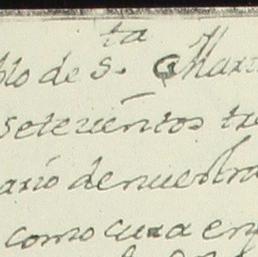 blo de S.ta Mari
setecientos tre
ario de nuestra
como cura en